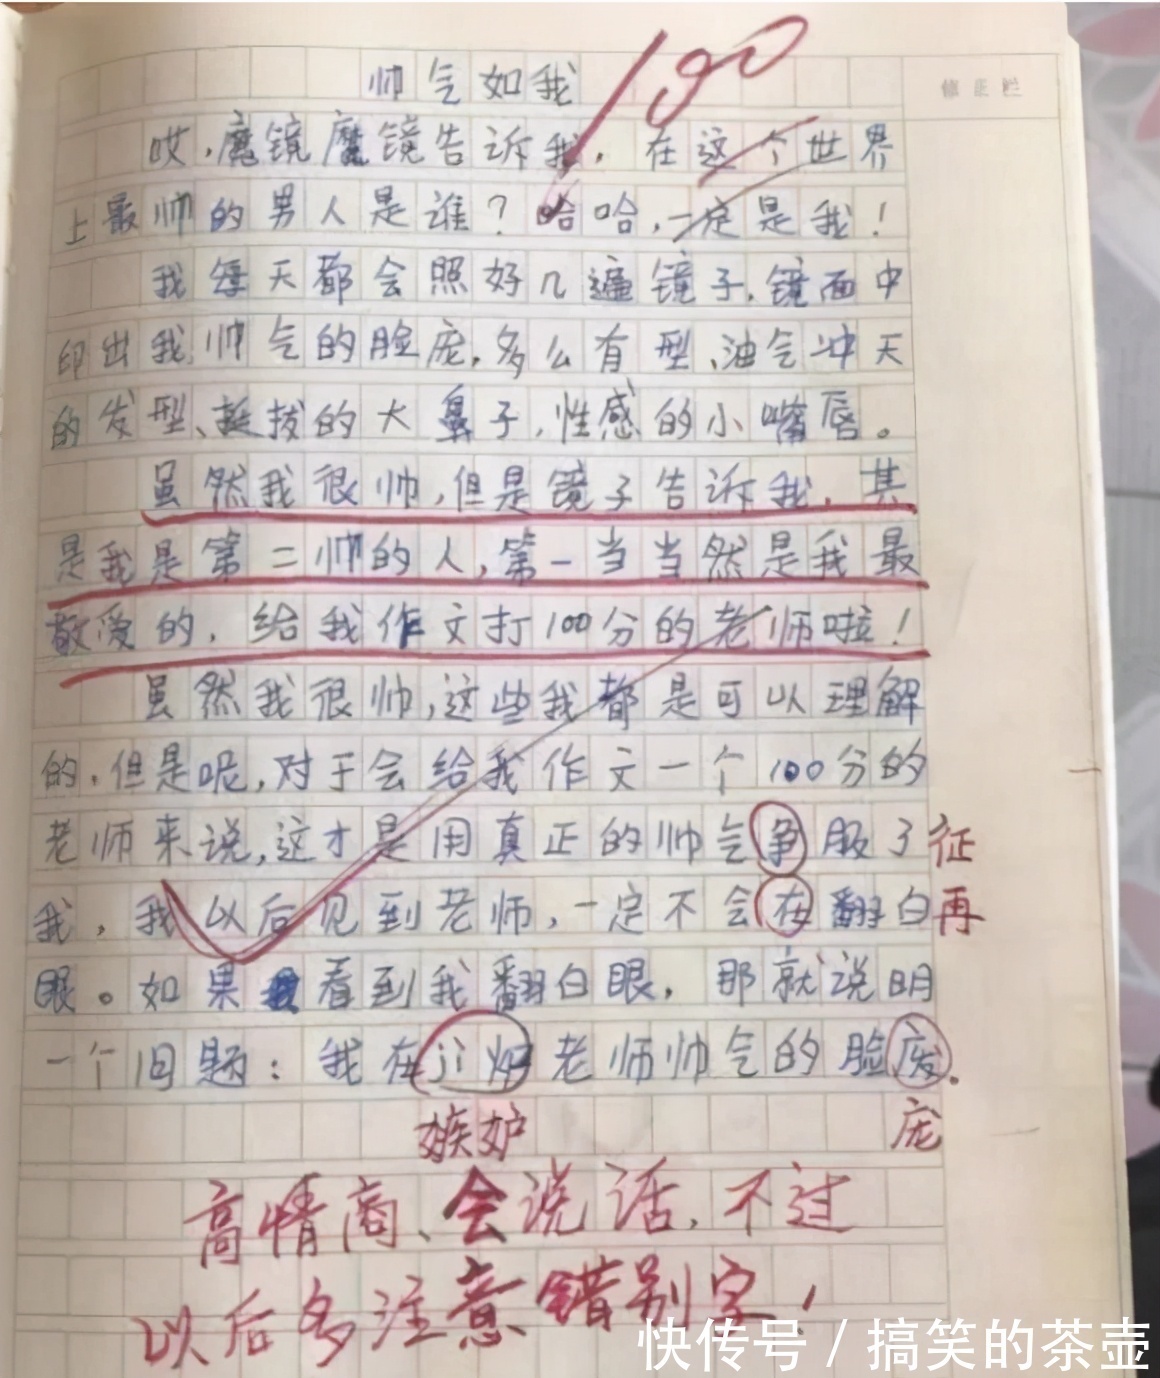 帅气如我
100
修正栏
哎，魔镜魔镜告诉我，在这个世界
上最帅的男人是谁？哈哈，一定是我！
我每天都会照好几遍镜子，镜面中
印出我帅气的脸庞，多么有型、油气冲天
的发型、挺拔的大鼻子，性感的小嘴唇。
虽然我很帅，但是镜子告诉我，其
是我是第二帅的人，第一当当然是我最
敬爱的，给我作文打100分的老师啦！
虽然我很帅，这些我都是可以理解
的，但是呢，对于会给我作文一个100分的
老师来说，这才是用真正的帅气争服了征
我，我以后见到老师，一定不会在翻白再
眼。如果我看到我翻白眼，那就说明
一个问题：我在ji妒老师帅气的脸庞。
嫉妒 庞
高情商、会说话，不过
以后多注意错别字！
快传号/搞笑的茶壶